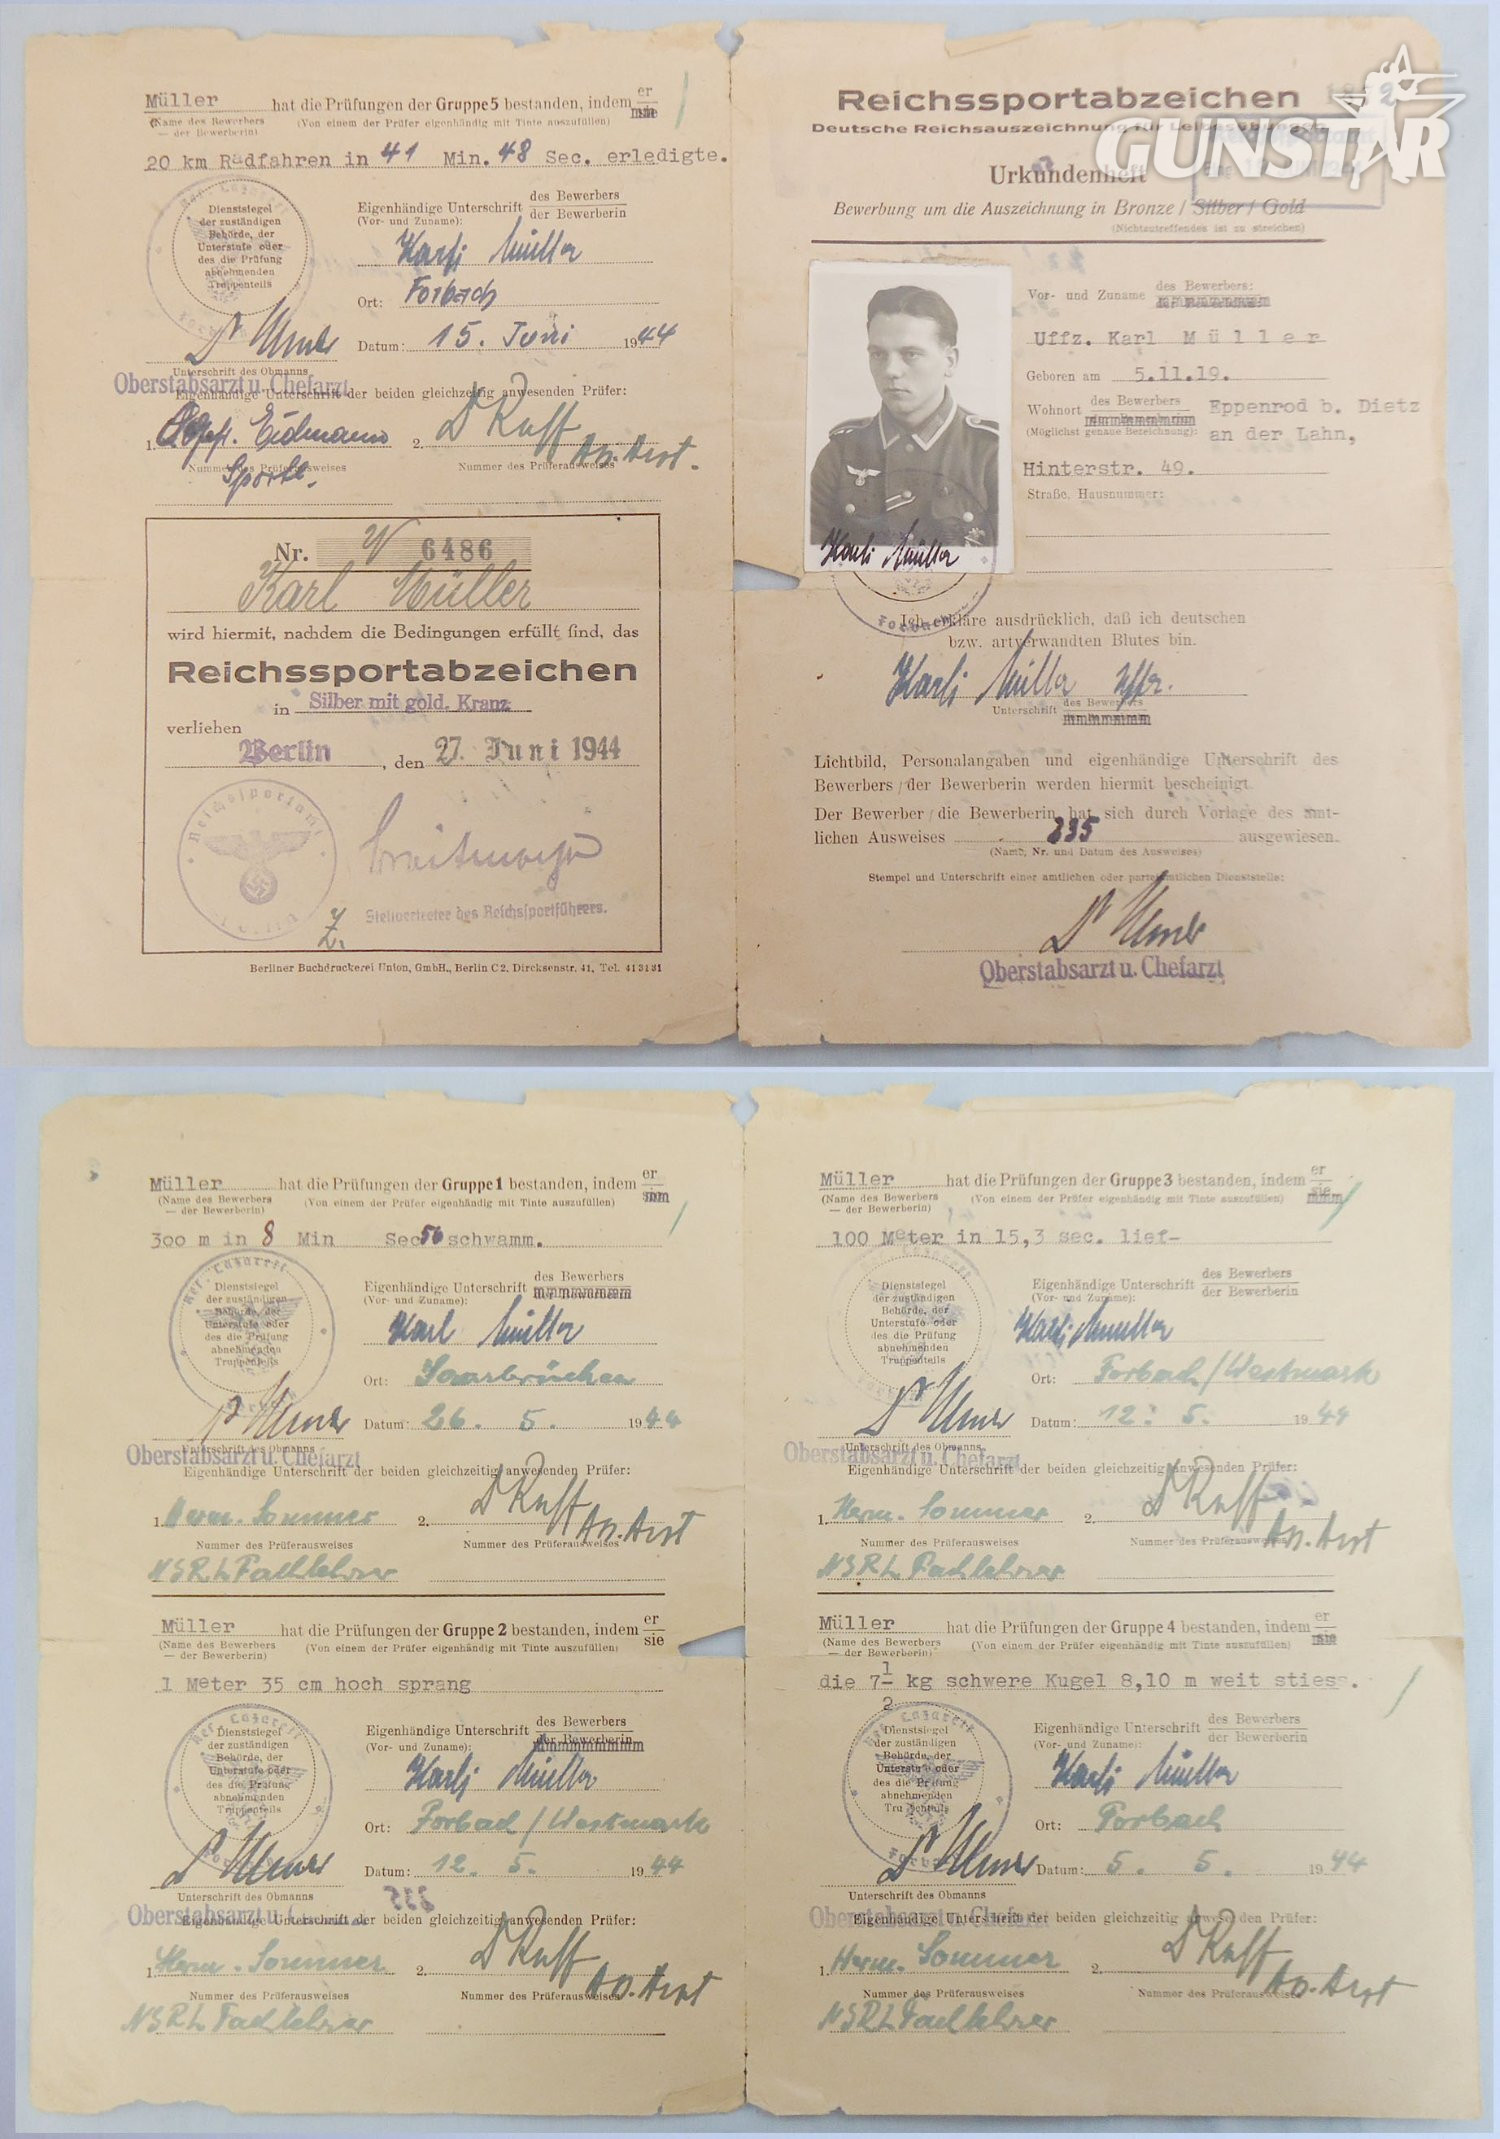 Müller hat die Prüfungen der Gruppe 5 bestanden, indem er
sie
(Name des Bewerbers (Von einem der Prüfer eigenhändig mit Tinte auszufüllen)
— der Bewerberin)
20 km Radfahren in 41 Min. 48 Sec. erledigte.
Dienstsiegel
der zuständigen
Behörde, der
Unterstufe oder
des die Prüfung
abnehmenden
Truppenteils
Eigenhändige Unterschrift des Bewerbers
der Bewerberin
(Vor- und Zuname):
Karli Müller
Ort: Forbach
Datum: 15. Juni 1944
Unterschrift des Obmanns
Oberstabsarzt u. Chefarzt
Eigenhändige Unterschrift der beiden gleichzeitig anwesenden Prüfer:
1. 2. Dr Ruff
Ass. Arzt.
Nummer des Prüferausweises Nummer des Prüferausweises
Nr. W 6486
Karl Müller
wird hiermit, nachdem die Bedingungen erfüllt sind, das
Reichssportabzeichen
in Silber mit gold. Kranz
verliehen
Berlin, den 27. Juni 1944
Reichssportamt
Stellvertreter des Reichssportführers.
Berliner Buchdruckerei Union, GmbH., Berlin C 2, Dircksenstr. 41, Tel. 413131
GUNSTAR
Reichssportabzeichen
Deutsche Reichsauszeichnung für Leibesübungen
Urkundenheft
Bewerbung um die Auszeichnung in Bronze / Silber / Gold
(Nichtzutreffendes ist zu streichen)
Vor- und Zuname des Bewerbers:
der Bewerberin:
Uffz. Karl Müller
Geboren am 5.11.19.
Wohnort des Bewerbers
der Bewerberin
(Möglichst genaue Bezeichnung):
Eppenrod b. Dietz
an der Lahn,
Hinterstr. 49.
Straße, Hausnummer:
Karli Müller
Forbach
Ich erkläre ausdrücklich, daß ich deutschen
bzw. artverwandten Blutes bin.
Karli Müller Uffz.
Unterschrift des Bewerbers
Lichtbild, Personalangaben und eigenhändige Unterschrift des
Bewerbers / der Bewerberin werden hiermit bescheinigt.
Der Bewerber / die Bewerberin hat sich durch Vorlage des amt-
lichen Ausweises 235 ausgewiesen.
(Name, Nr. und Datum des Ausweises)
Stempel und Unterschrift einer amtlichen oder parteiamtlichen Dienststelle:
Oberstabsarzt u. Chefarzt
Müller hat die Prüfungen der Gruppe 1 bestanden, indem er
(Name des Bewerbers (Von einem der Prüfer eigenhändig mit Tinte auszufüllen)
— der Bewerberin)
300 m in 8 Min Sec 56 schwamm.
Res.-Lazarett
Dienstsiegel
der zuständigen
Behörde, der
Unterstufe oder
des die Prüfung
abnehmenden
Truppenteils
Eigenhändige Unterschrift des Bewerbers
der Bewerberin
(Vor- und Zuname):
Karl Müller
Ort: Saarbrücken
Datum: 26. 5. 1944
Unterschrift des Obmanns
Oberstabsarzt u. Chefarzt
Eigenhändige Unterschrift der beiden gleichzeitig anwesenden Prüfer:
1. Herm. Sommer 2. Dr Ruff
Ass. Arzt
Nummer des Prüferausweises Nummer des Prüferausweises
NSRL Fachlehrer
Müller hat die Prüfungen der Gruppe 2 bestanden, indem er
sie
(Name des Bewerbers (Von einem der Prüfer eigenhändig mit Tinte auszufüllen)
— der Bewerberin)
1 Meter 35 cm hoch sprang
Res. Lazarett
Dienstsiegel
der zuständigen
Behörde, der
Unterstufe oder
des die Prüfung
abnehmenden
Truppenteils
Eigenhändige Unterschrift des Bewerbers
der Bewerberin
(Vor- und Zuname):
Karli Müller
Ort: Forbach / Westmark
Datum: 12. 5. 1944
Unterschrift des Obmanns
Oberstabsarzt u. Chefarzt
Eigenhändige Unterschrift der beiden gleichzeitig anwesenden Prüfer:
1. Herm. Sommer 2. Dr Ruff
Ass. Arzt
Nummer des Prüferausweises Nummer des Prüferausweises
NSRL Fachlehrer
Müller hat die Prüfungen der Gruppe 3 bestanden, indem er
sie
(Name des Bewerbers (Von einem der Prüfer eigenhändig mit Tinte auszufüllen)
— der Bewerberin)
100 Meter in 15,3 sec. lief-
Dienstsiegel
der zuständigen
Behörde, der
Unterstufe oder
des die Prüfung
abnehmenden
Truppenteils
Eigenhändige Unterschrift des Bewerbers
der Bewerberin
(Vor- und Zuname):
Karli Müller
Ort: Forbach / Westmark
Datum: 12. 5. 1944
Unterschrift des Obmanns
Oberstabsarzt u. Chefarzt
Eigenhändige Unterschrift der beiden gleichzeitig anwesenden Prüfer:
1. Herm. Sommer 2. Dr Ruff
Ass. Arzt
Nummer des Prüferausweises Nummer des Prüferausweises
NSRL Fachlehrer
Müller hat die Prüfungen der Gruppe 4 bestanden, indem er
sie
(Name des Bewerbers (Von einem der Prüfer eigenhändig mit Tinte auszufüllen)
— der Bewerberin)
die 7 1/2 kg schwere Kugel 8,10 m weit stiess.
Res. Lazarett
Dienstsiegel
der zuständigen
Behörde, der
Unterstufe oder
des die Prüfung
abnehmenden
Truppenteils
Eigenhändige Unterschrift des Bewerbers
der Bewerberin
(Vor- und Zuname):
Karli Müller
Ort: Forbach
Datum: 5. 5. 1944
Unterschrift des Obmanns
Oberstabsarzt u. Chefarzt
Eigenhändige Unterschrift der beiden gleichzeitig anwesenden Prüfer:
1. Herm. Sommer 2. Dr Ruff
Ass. Arzt
Nummer des Prüferausweises Nummer des Prüferausweises
NSRL Fachlehrer